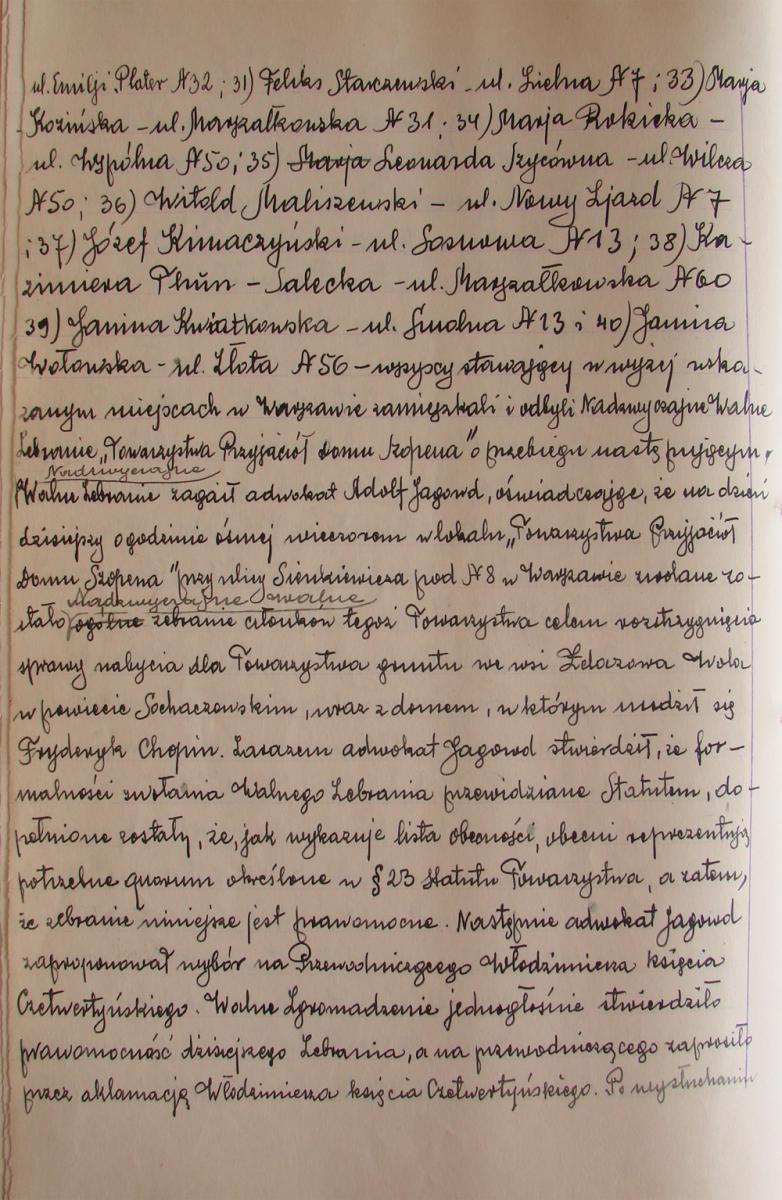 ul. Emilji Plater № 32 ; 31) Feliks Starczewski - ul. Zielna № 7 ; 33) Marja
Kozińska - ul. Marszałkowska № 31 ; 34) Marja Rokicka -
ul. Wspólna № 50 ; 35) Marja Leonarda Szycówna - ul. Wilcza
№ 50 ; 36) Witold Maliszewski - ul. Nowy Zjazd № 7
; 37) Józef Kimaczyński - ul. Sosnowa № 13 ; 38) Ka-
zimiera Thun - Salecka - ul. Marszałkowska № 60
39) Janina Kwiatkowska - ul. Smolna № 13 i 40) Janina
Wołowska - ul. Złota № 56 - wszyscy stawający w wyżej wska-
zanym miejscach w Warszawie zamieszkali i odbyli Nadzwyczajne Walne
Zebranie „Towarzystwa Przyjaciół Domu Szopena" o przebiegu następującym.
Nadzwyczajne
Walne Zebranie zagaił adwokat Adolf Jagowd, oświadczając, że na dzień
dzisiejszy o godzinie ósmej wieczorem w lokalu „Towarzystwa Przyjaciół
Domu Szopena" przy ulicy Sienkiewicza pod № 8 w Warszawie zwołane zo-
Nadzwyczajne walne
stało ogólne zebranie członków tegoż Towarzystwa celem rozstrzygnięcia
sprawy nabycia dla Towarzystwa gruntu we wsi Żelazowa Wola
w powiecie Sochaczewskim, wraz z domem, w którym urodził się
Fryderyk Chopin. Zarazem adwokat Jagowd stwierdził, że for-
malności zwołania Walnego Zebrania przewidziane Statutem, do-
pełnione zostały, że, jak wykazuje lista obecności, obecni reprezentują
potrzebne quorum określone w § 23 statutu Towarzystwa, a zatem,
że zebranie niniejsze jest prawomocne. Następnie adwokat Jagowd
zaproponował wybór na Przewodniczącego Włodzimierza księcia
Czetwertyńskiego. Walne Zgromadzenie jednogłośnie stwierdziło
prawomocność dzisiejszego Zebrania, a na przewodniczącego zaprosiło
przez aklamację Włodzimierza księcia Czetwertyńskiego. Po wysłuchaniu